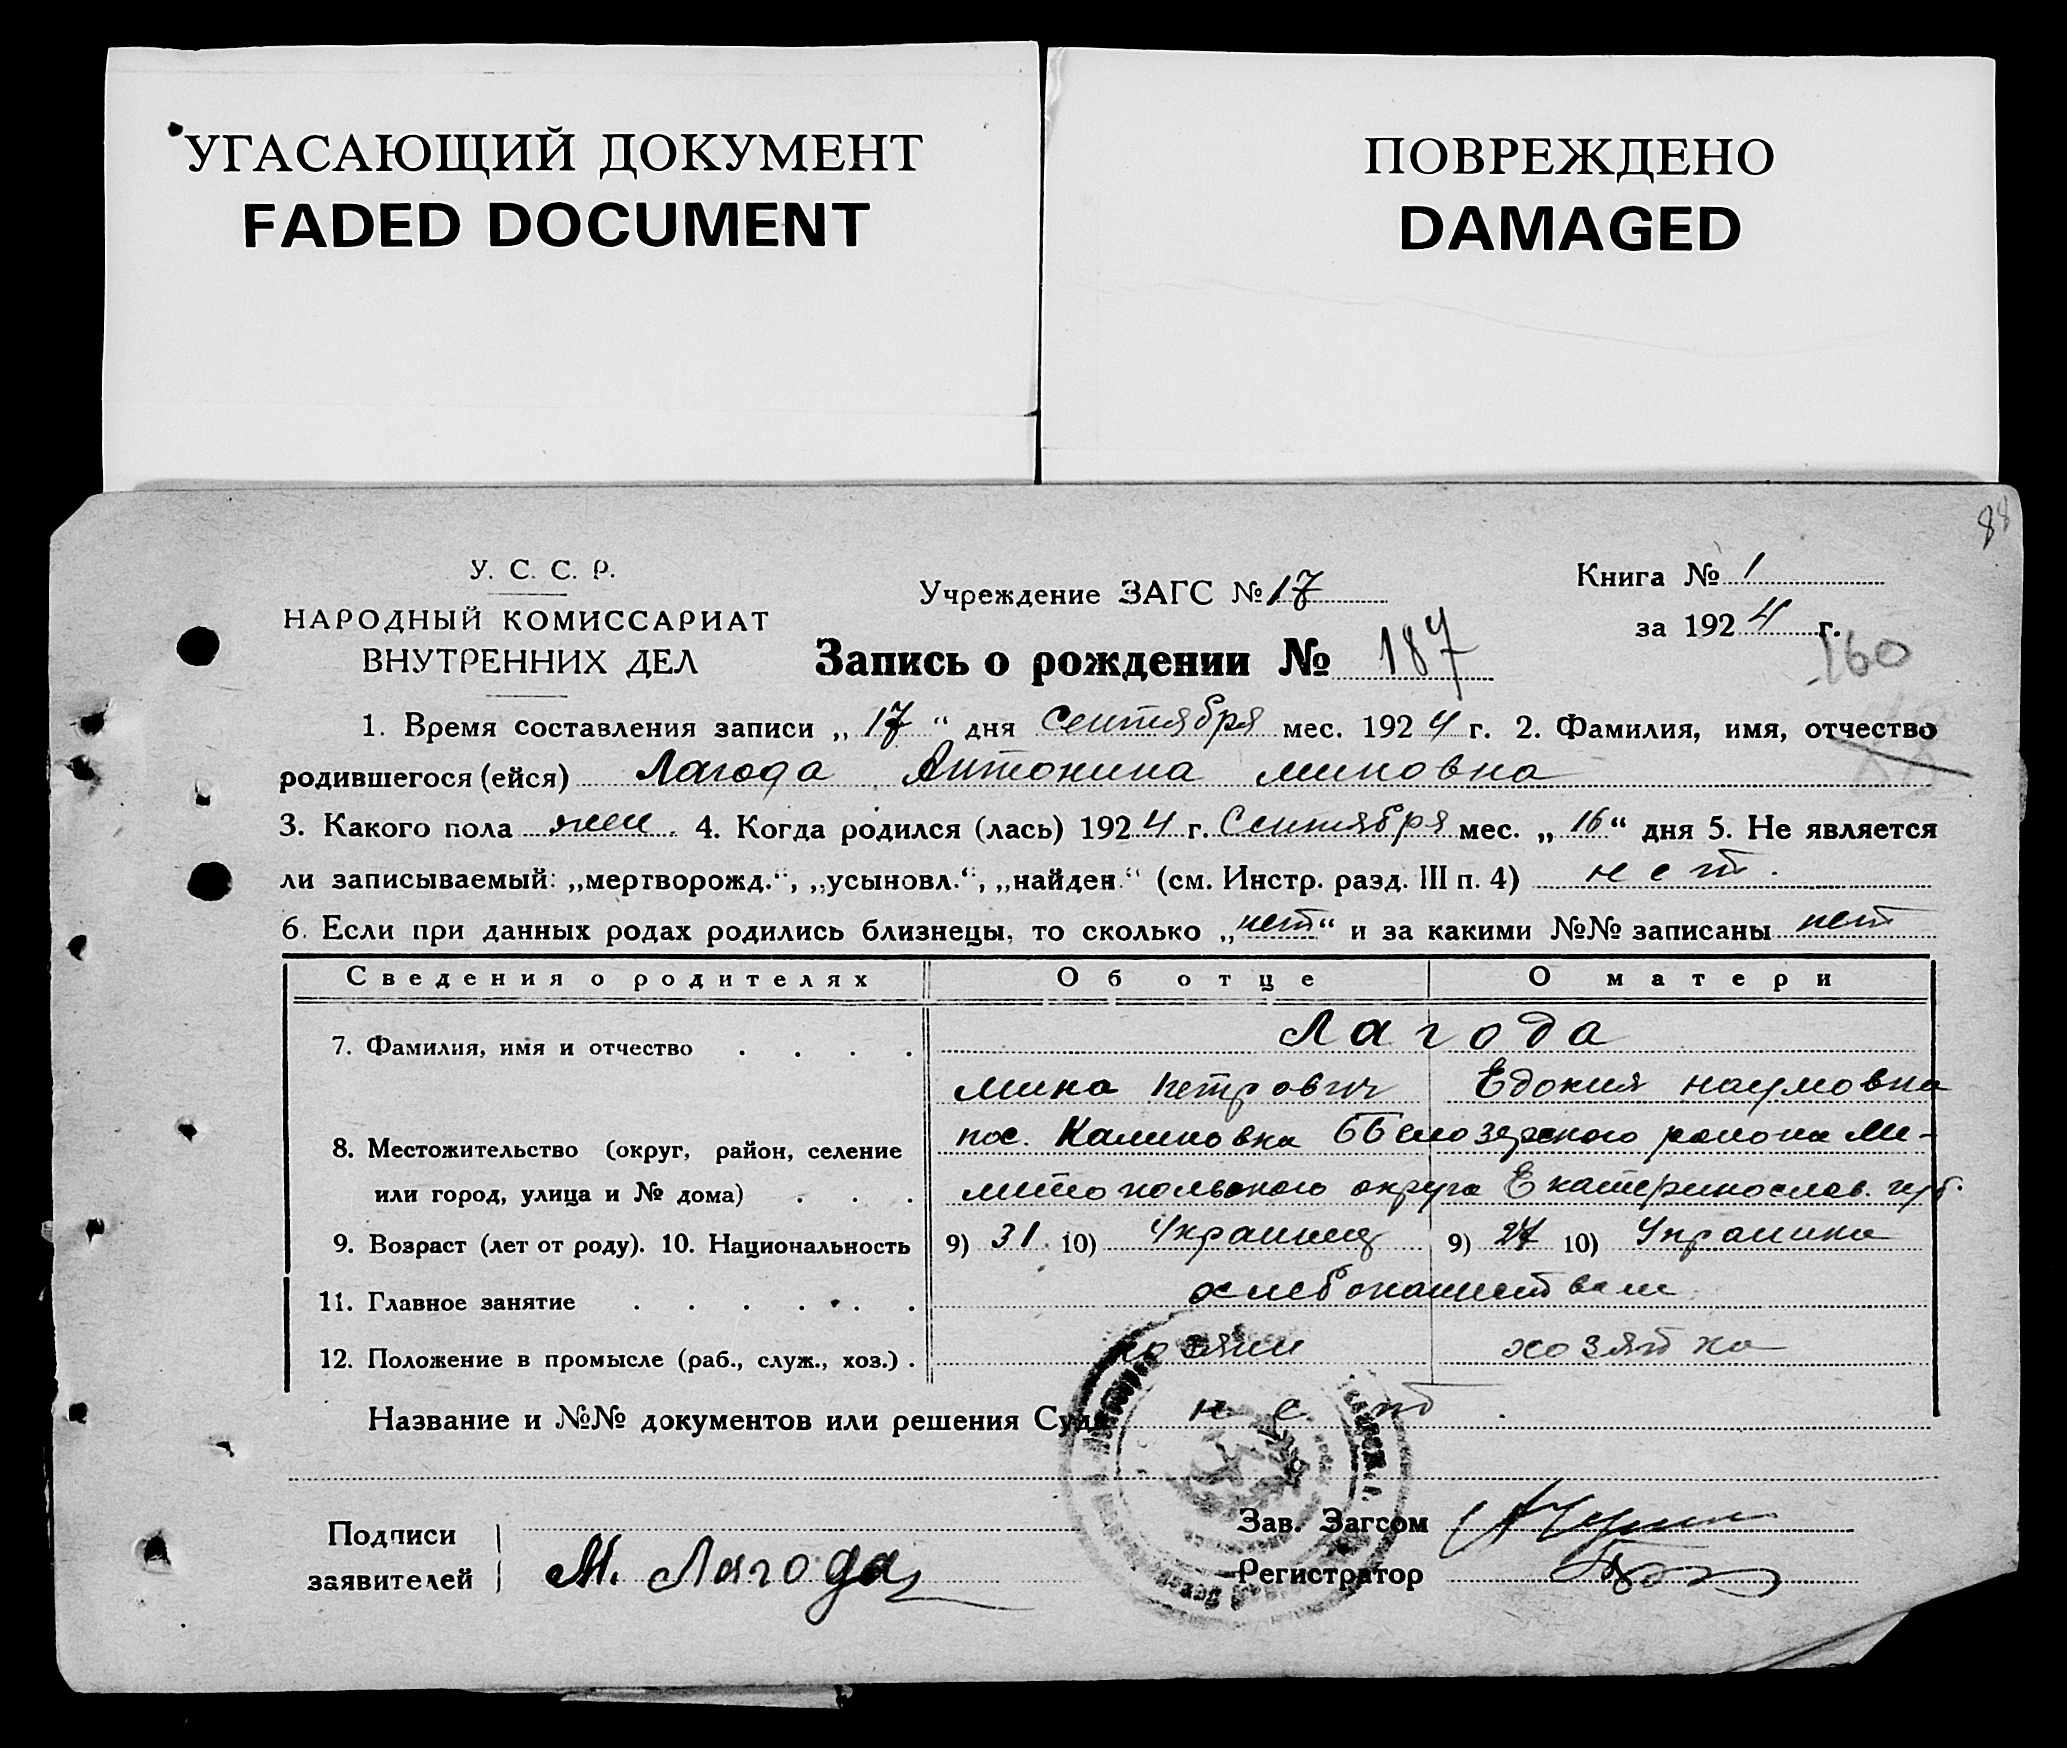 УГАСАЮЩИЙ ДОКУМЕНТ
FADED DOCUMENT
ПОВРЕЖДЕНО
DAMAGED
88
У. С. С. Р.
НАРОДНЫЙ КОМИССАРИАТ
ВНУТРЕННИХ ДЕЛ
Учреждение ЗАГС № 17
Книга № 1
за 1924 г.
160
Запись о рождении № 187
1. Время составления записи „17“ дня Сентября мес. 1924 г. 2. Фамилия, имя, отчество
родившегося (ейся) Лагода Антонина Миновна
3. Какого пола жен. 4. Когда родился (лась) 1924 г. Сентября мес. „16“ дня 5. Не является
ли записываемый: „мертворожд.“, „усыновл.“, „найден.“ (см. Инстр. разд. III п. 4) нет.
6. Если при данных родах родились близнецы, то сколько „нет“ и за какими №№ записаны нет
Сведения о родителях Об отце О матери
7. Фамилия, имя и отчество . . . . Лагода
Мина Петрович Евдокия Наумовна
8. Местожительство (округ, район, селение пос. Калиновка ББелозерского района Ме-
или город, улица и № дома) . . . литопольского округа Екатеринослав. губ.
9. Возраст (лет от роду). 10. Национальность 9) 31. 10) Украинец 9) 27 10) Украинка
11. Главное занятие . . . . . . хлебопашество
12. Положение в промысле (раб., служ., хоз.) . хозяин хозяйка
Название и №№ документов или решения Суда нет.
Подписи
заявителей М. Лагода
Зав. Загсом
Регистратор